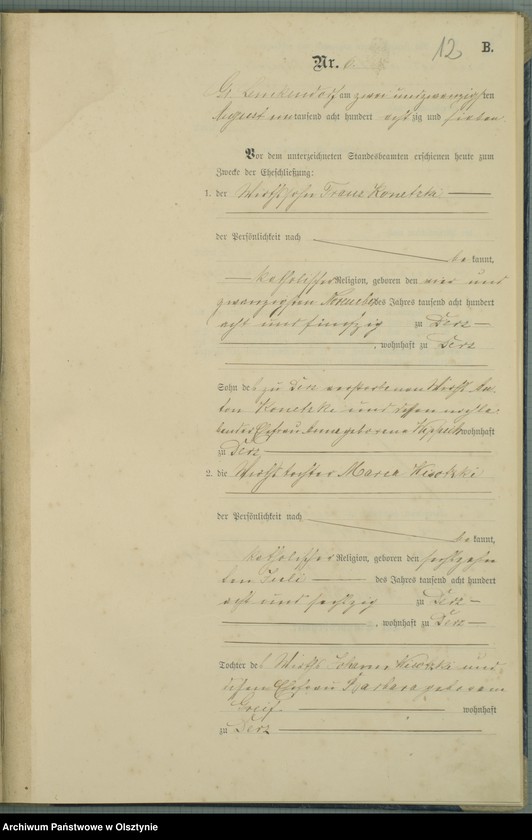 12 B.
Nr.
Gr. Lemkendorf am zwei und zwanzigsten
August tausend acht hundert achtzig und sieben
Vor dem unterzeichneten Standesbeamten erschienen heute zum
Zwecke der Eheschließung:
1. der Wirthssohn Franz Konetzka
der Persönlichkeit nach
be kannt,
katholischer Religion, geboren den vier und
zwanzigsten November des Jahres tausend acht hundert
acht und fünfzig zu Derz
, wohnhaft zu Derz
Sohn des zu Derz verstorbenen Wirths An-
ton Konetzki und dessen
Ehefrau Anna geborene wohnhaft
zu Derz
2. die Wirthstochter Maria Wisotzki
der Persönlichkeit nach
be kannt,
katholischer Religion, geboren den sechszehn
ten Juli des Jahres tausend acht hundert
acht und sechszig zu Derz
, wohnhaft zu Derz
Tochter des Wirths Johann Wisotzki und
Ehefrau Barbara geborenen
Greif wohnhaft
zu Derz
Archiwum Państwowe w Olsztynie